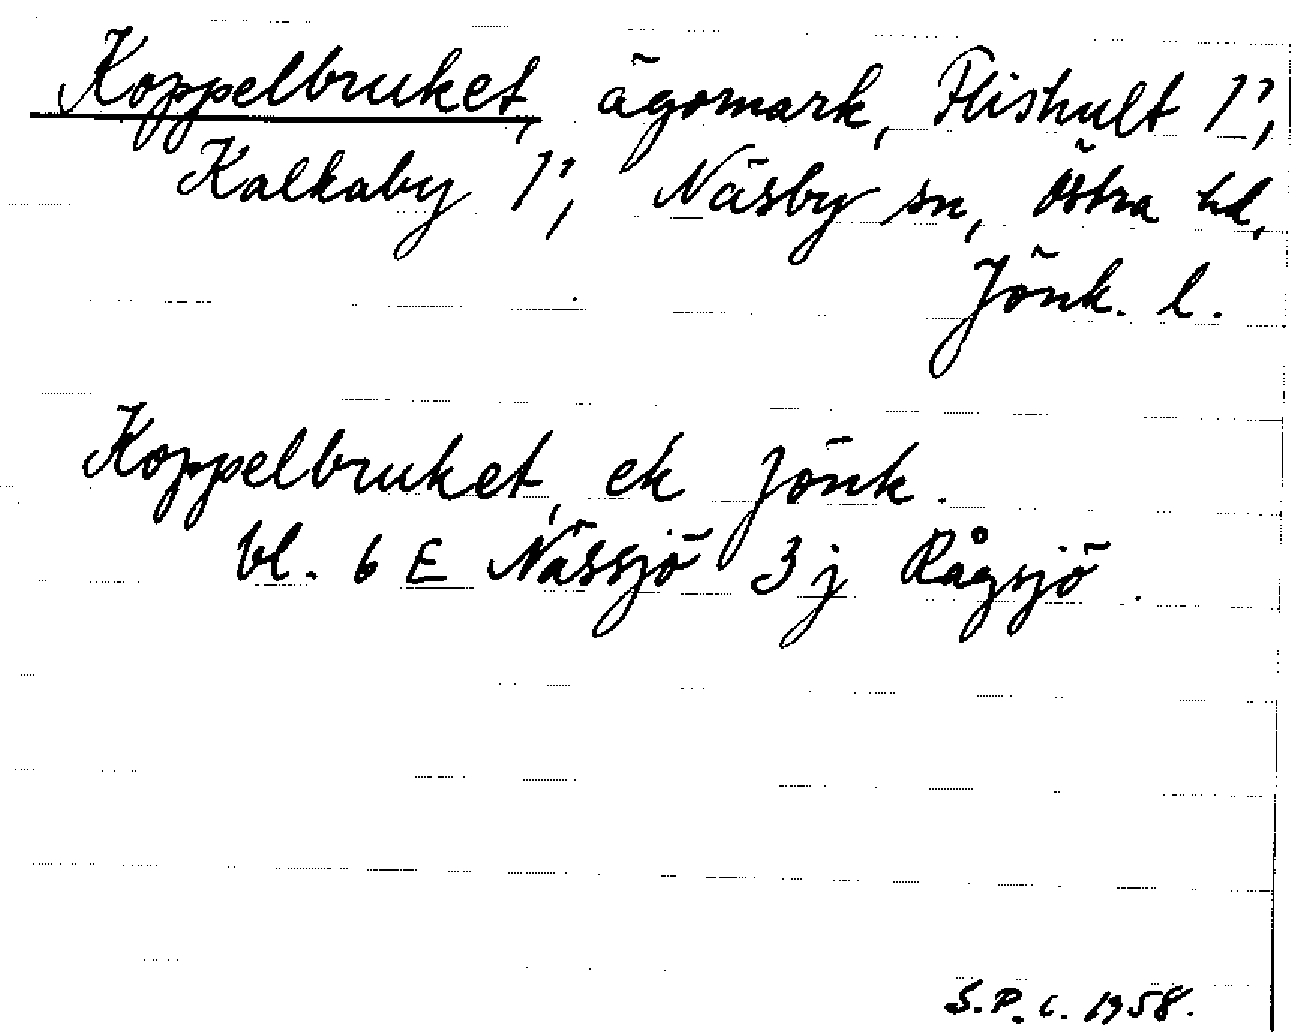 Koppelbruket, ägomark, Flishult 1²,
Kalkaby 1², Näsby sn, Östra hd,
Jönk. l.
Koppelbruket, ek Jönk.
bl. 6 E Nässjö 3 j Rågsjö.
S.P.c. 1958.